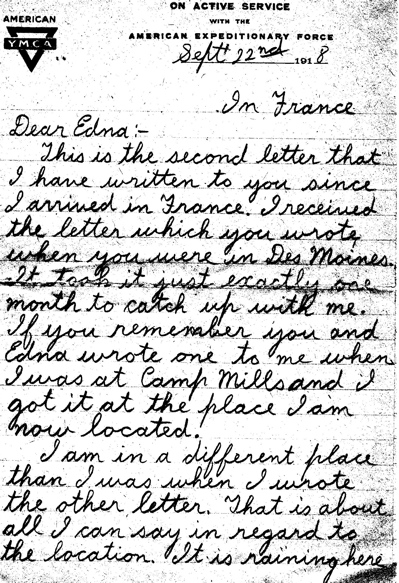 ON ACTIVE SERVICE
WITH THE
AMERICAN EXPEDITIONARY FORCE
AMERICAN
YMCA
Sept 22nd 1918
In France
Dear Edna:-
This is the second letter that
I have written to you since
I arrived in France. I received
the letter which you wrote
when you were in Des Moines.
It took it just exactly one
month to catch up with me.
If you remember you and
Edna wrote one to me when
I was at Camp Mills and I
got it at the place I am
now located.
I am in a different place
than I was when I wrote
the other letter. That is about
all I can say in regard to
the location. It is raining here